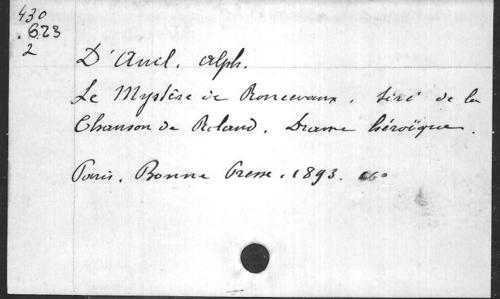 430
.623
2
D'Avril. Alph.
Le Mystère de Roncevaux. tiré de la
Chanson de Roland. Drame héroïque.
Paris. Bonne Presse. 1893.